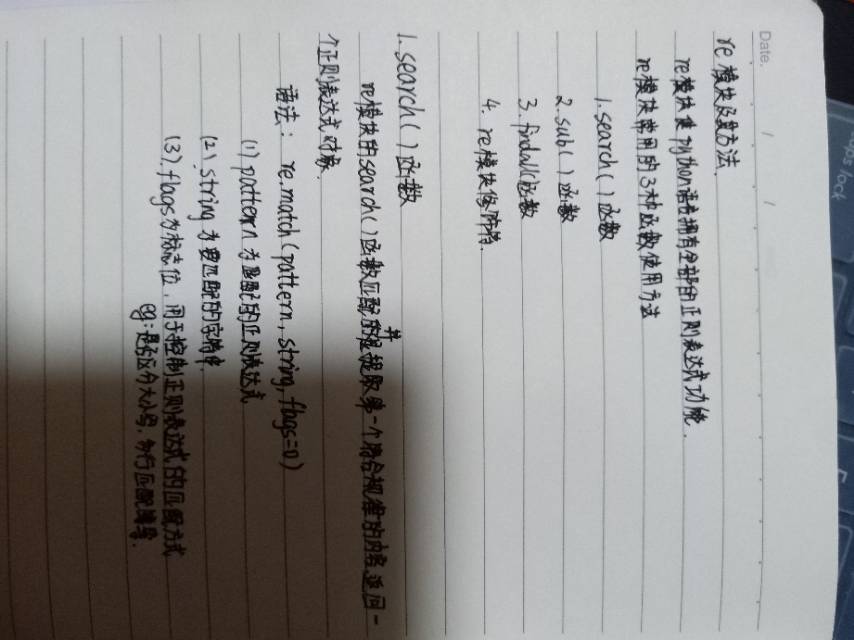 Date. / /
re模块及其方法
re模块使python语言拥有全部的正则表达式功能.
re模块常用的3种函数使用方法
1.search()函数
2.sub()函数
3.findall()函数
4.re模块修饰符.
1.search()函数
re模块的search()函数匹配并提取第一个符合规律的内容,返回一
个正则表达式对象.
语法: re.match(pattern, string, flags=0)
(1) pattern为匹配的正则表达式
(2) string为要匹配的字符串.
(3).flags为标志位,用于控制正则表达式的匹配方式
eg:是否区分大小写,多行匹配等.
caps lock